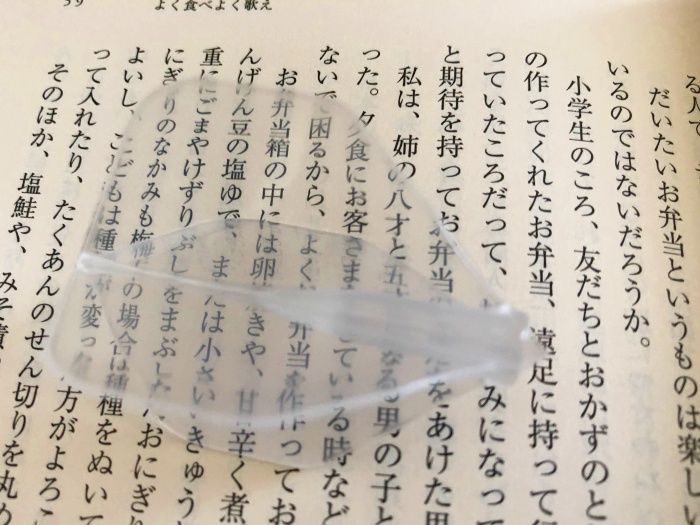 よく食べよく歌え
る人
だいたいお弁当というものは楽しい
いるのではないだろうか。
小学生のころ、友だちとおかずのと
の作ってくれたお弁当、遠足に持って
っていたころだって、みになって
と期待を持ってお弁当のをあけた男
私は、姉の八才と五なる男の子と
った。夕食にお客さまている時など
ないで困るから、よく弁当を作ってお
お弁当箱の中には卵きや、甘辛く煮
んげん豆の塩ゆで、または小さいきゅう
重にごまやけずりぶしをまぶしたおにぎり
にぎりのなかみも梅の場合は種をぬいて
よいし、こどもは種が変った方がよろこ
って入れたり、たくあんのせん切りを丸め
そのほか、塩鮭や、みそ漬